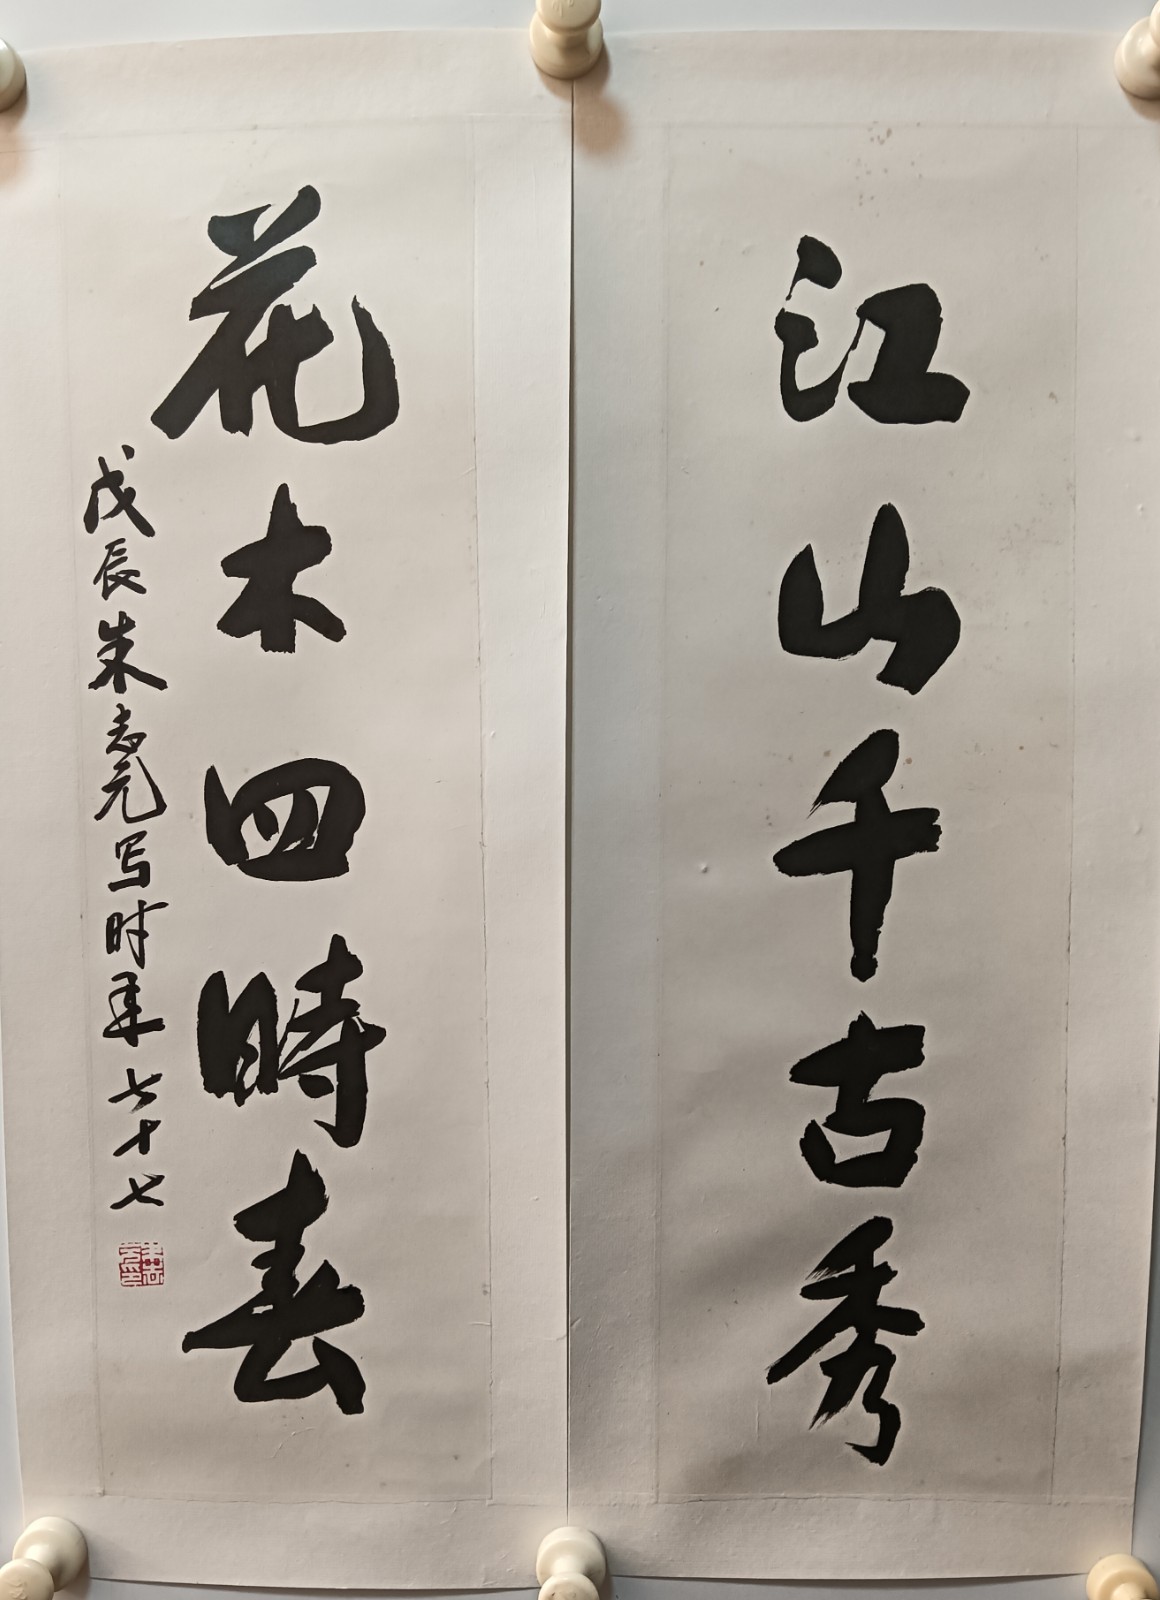 江山千古秀
花木四時春
戊辰朱志元写时年七十七